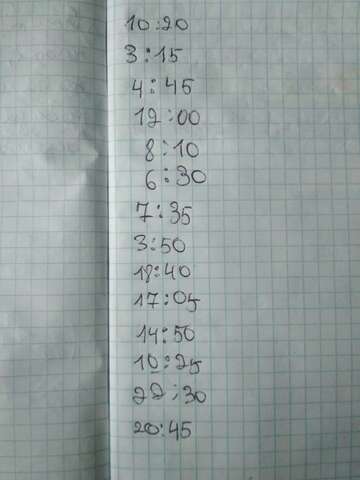 10:20
3:15
4:45
12:00
8:10
6:30
7:35
3:50
18:40
17:05
14:50
10:25
22:30
20:45